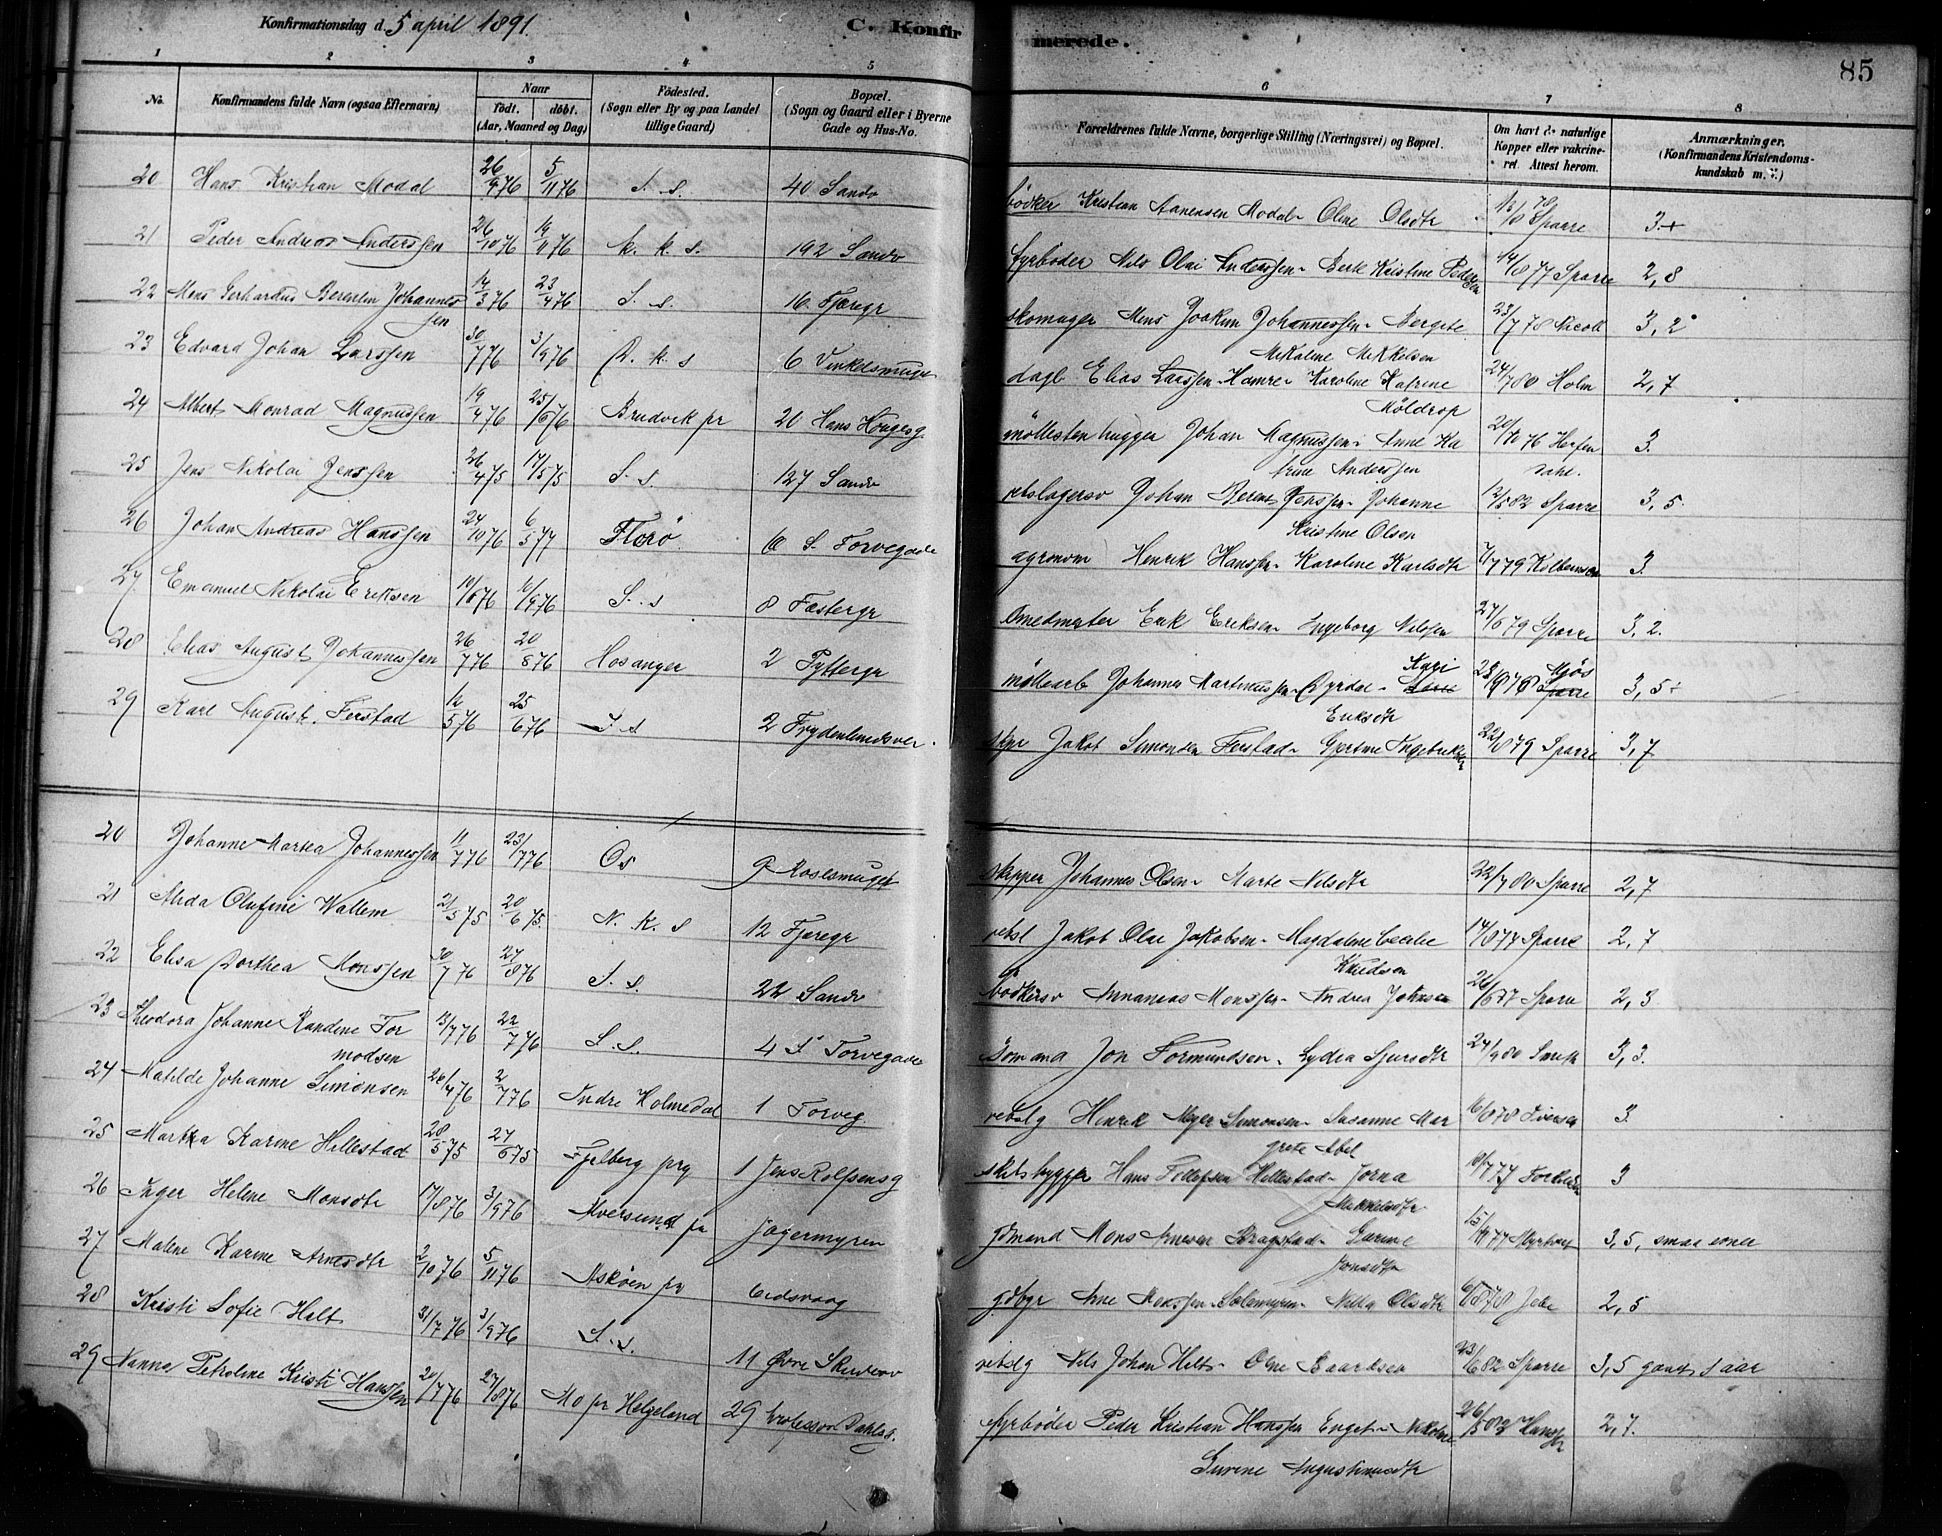 Konfirmationsdag d. 5 april 1891.
C. Konfir
merede.
85
1 2 3 4 5 6 7 8
No. Konfirmandens fulde Navn (ogsaa Efternavn) Naar Födt. döbt. (Aar, Maaned og Dag) Födested. (Sogn eller By og paa Landet tillige Gaard) Bopæl. (Sogn og Gaard eller i Byerne Gade og Hus-No. Forældrenes fulde Navne, borgerlige Stilling (Næringsvei) og Bopæl. Om havt de naturlige Kopper eller vakcineret. Attest herom. Anmærkninger. (Konfirmandens Kristendomskundskab m. V.)
20 Hans Kristian Modal 26/9 76 5/11 76 S. s. 40 Sandv bödker Kristian Aanensen Modal - Oline Olsdtr Sparre 3+
21 Peder Andreas Anderssen 26/10 76 19/11 76 K. k. s. 192 Sandv fyrböder Nils Olai Anderssen - Kristine Pedersen 14/8 77 Sparre 2,8
22 Mons Gerhardus Berentin Johannessen 14/3 76 23/4 76 S. s. 16 Fjæregr skomager Mons Joakim Johannessen - Bergete Mikaline Mikkelsen 23/7 78 3,2
23 Edvard Johan Larssen 30/7 76 3/9 76 D. k. s 6 Vinkelsmuget dagl. Elias Larssen Hamre - Karoline Katrine Möldrop 24/7 80 Holm 2,7
24 Albert Monrad Magnussen 19/4 76 25/6 76 Brudvik pr 20 Hans Haugesg. möllestenhugger Johan Magnussen - Anne Katrine Anderssen 3.
25 Jens Nikolai Jenssen 26/4 75 17/5 75 S. s 127 Sandv Johan Berent Jenssen - Johanne Kristine Olsen 12/8 82 Sparre 3,5.
26 Johan Andreas Hanssen 24/10 76 6/5 77 Florö 6 S. Torvegade agronom Henrik Hanssen - Karoline Karlsdtr 3.
27 Emanuel Nikolai Eriksen 10/6 76 10/9 76 S. s 8 Fæstergr Smedmester Erik Eriksen - Ingeborg Nilssen 27/6 79 Sparre 3,2.
28 Elias August Johannessen 26/7 76 20/8 76 Hosanger 2 Pyttergr möllearb Johannes Martinussen Dyrdal - Kari Eriksdtr Mjös 3,5+
29 Karl August Ferstad 16/5 76 25/6 76 S s 2 Frydenlundsvei Jakob Simonsen Ferstad - 22/8 79 Sparre 3,7
20 Johanne Martea Johannessen 11/7 76 23/7 76 Os 9 Rosesmuget skipper Johannes Olsen - Marte Nilsdtr 22/7 80 Sparre 2,7
21 Alida Olufine Wallem 21/5 75 20/6 75 N. K. s 12 Fjæregr Jakob Olai Jakobsen - Magdalene Cecilie Knudsen 14/8 77 Sparre 2,7
22 Elisa Dorthea Monssen 30/7 76 27/8 76 S. s. 22 Sandv bödkersv Annanias Monssen - Andrea Johnsen 26/6 77 Sparre 2,3
23 Theodora Johanne Randine Tormodsen 13/7 76 22/7 76 S. s. 4 S Torvegade Sömand Jon Tormundsen - Lydia Sjursdtr 24/9 80 Smith 3,3.
24 Matilde Johanne Simonsen 26/4 76 2/7 76 Indre Holmedal 1 Torveg. Henrik Meyer Simonsen - Susanne Margrete Abel 16/8 78 Iversen 3.
25 Martha Karine Hillestad 28/5 75 27/6 75 Fjelberg prg 1 Jens Rolfsensg skibsbygger Hans Tollefsen Hillestad - Jorna Mikkelsdtr 3
26 Inger Helene Monsdtr 17/8 76 3/9 76 Alversund pr Jægermyren gdmand Mons Bragstad - Jonsdtr 3,5, smaa evner
27 Malene Karine Arnesdtr 2/10 76 5/11 76 Asköen pr Eidsvaag Arne Monssen - Olsdtr 2,5
28 Kristi Sofie Holt 31/7 76 3/9 76 S. s. 11 Övre Nils Johan Holt - Oline Baardsen 23/6 82 Sparre 3,5 gaaet 1 aar
29 Nanna Petroline Kristi Hanssen 20/7 76 27/8 76 Mo pr Helgeland 29 Professor Dahlsg. fyrböder Peder Kristian Hanssen Enget - Nikoline Gurine Augustinusdtr 2,7.